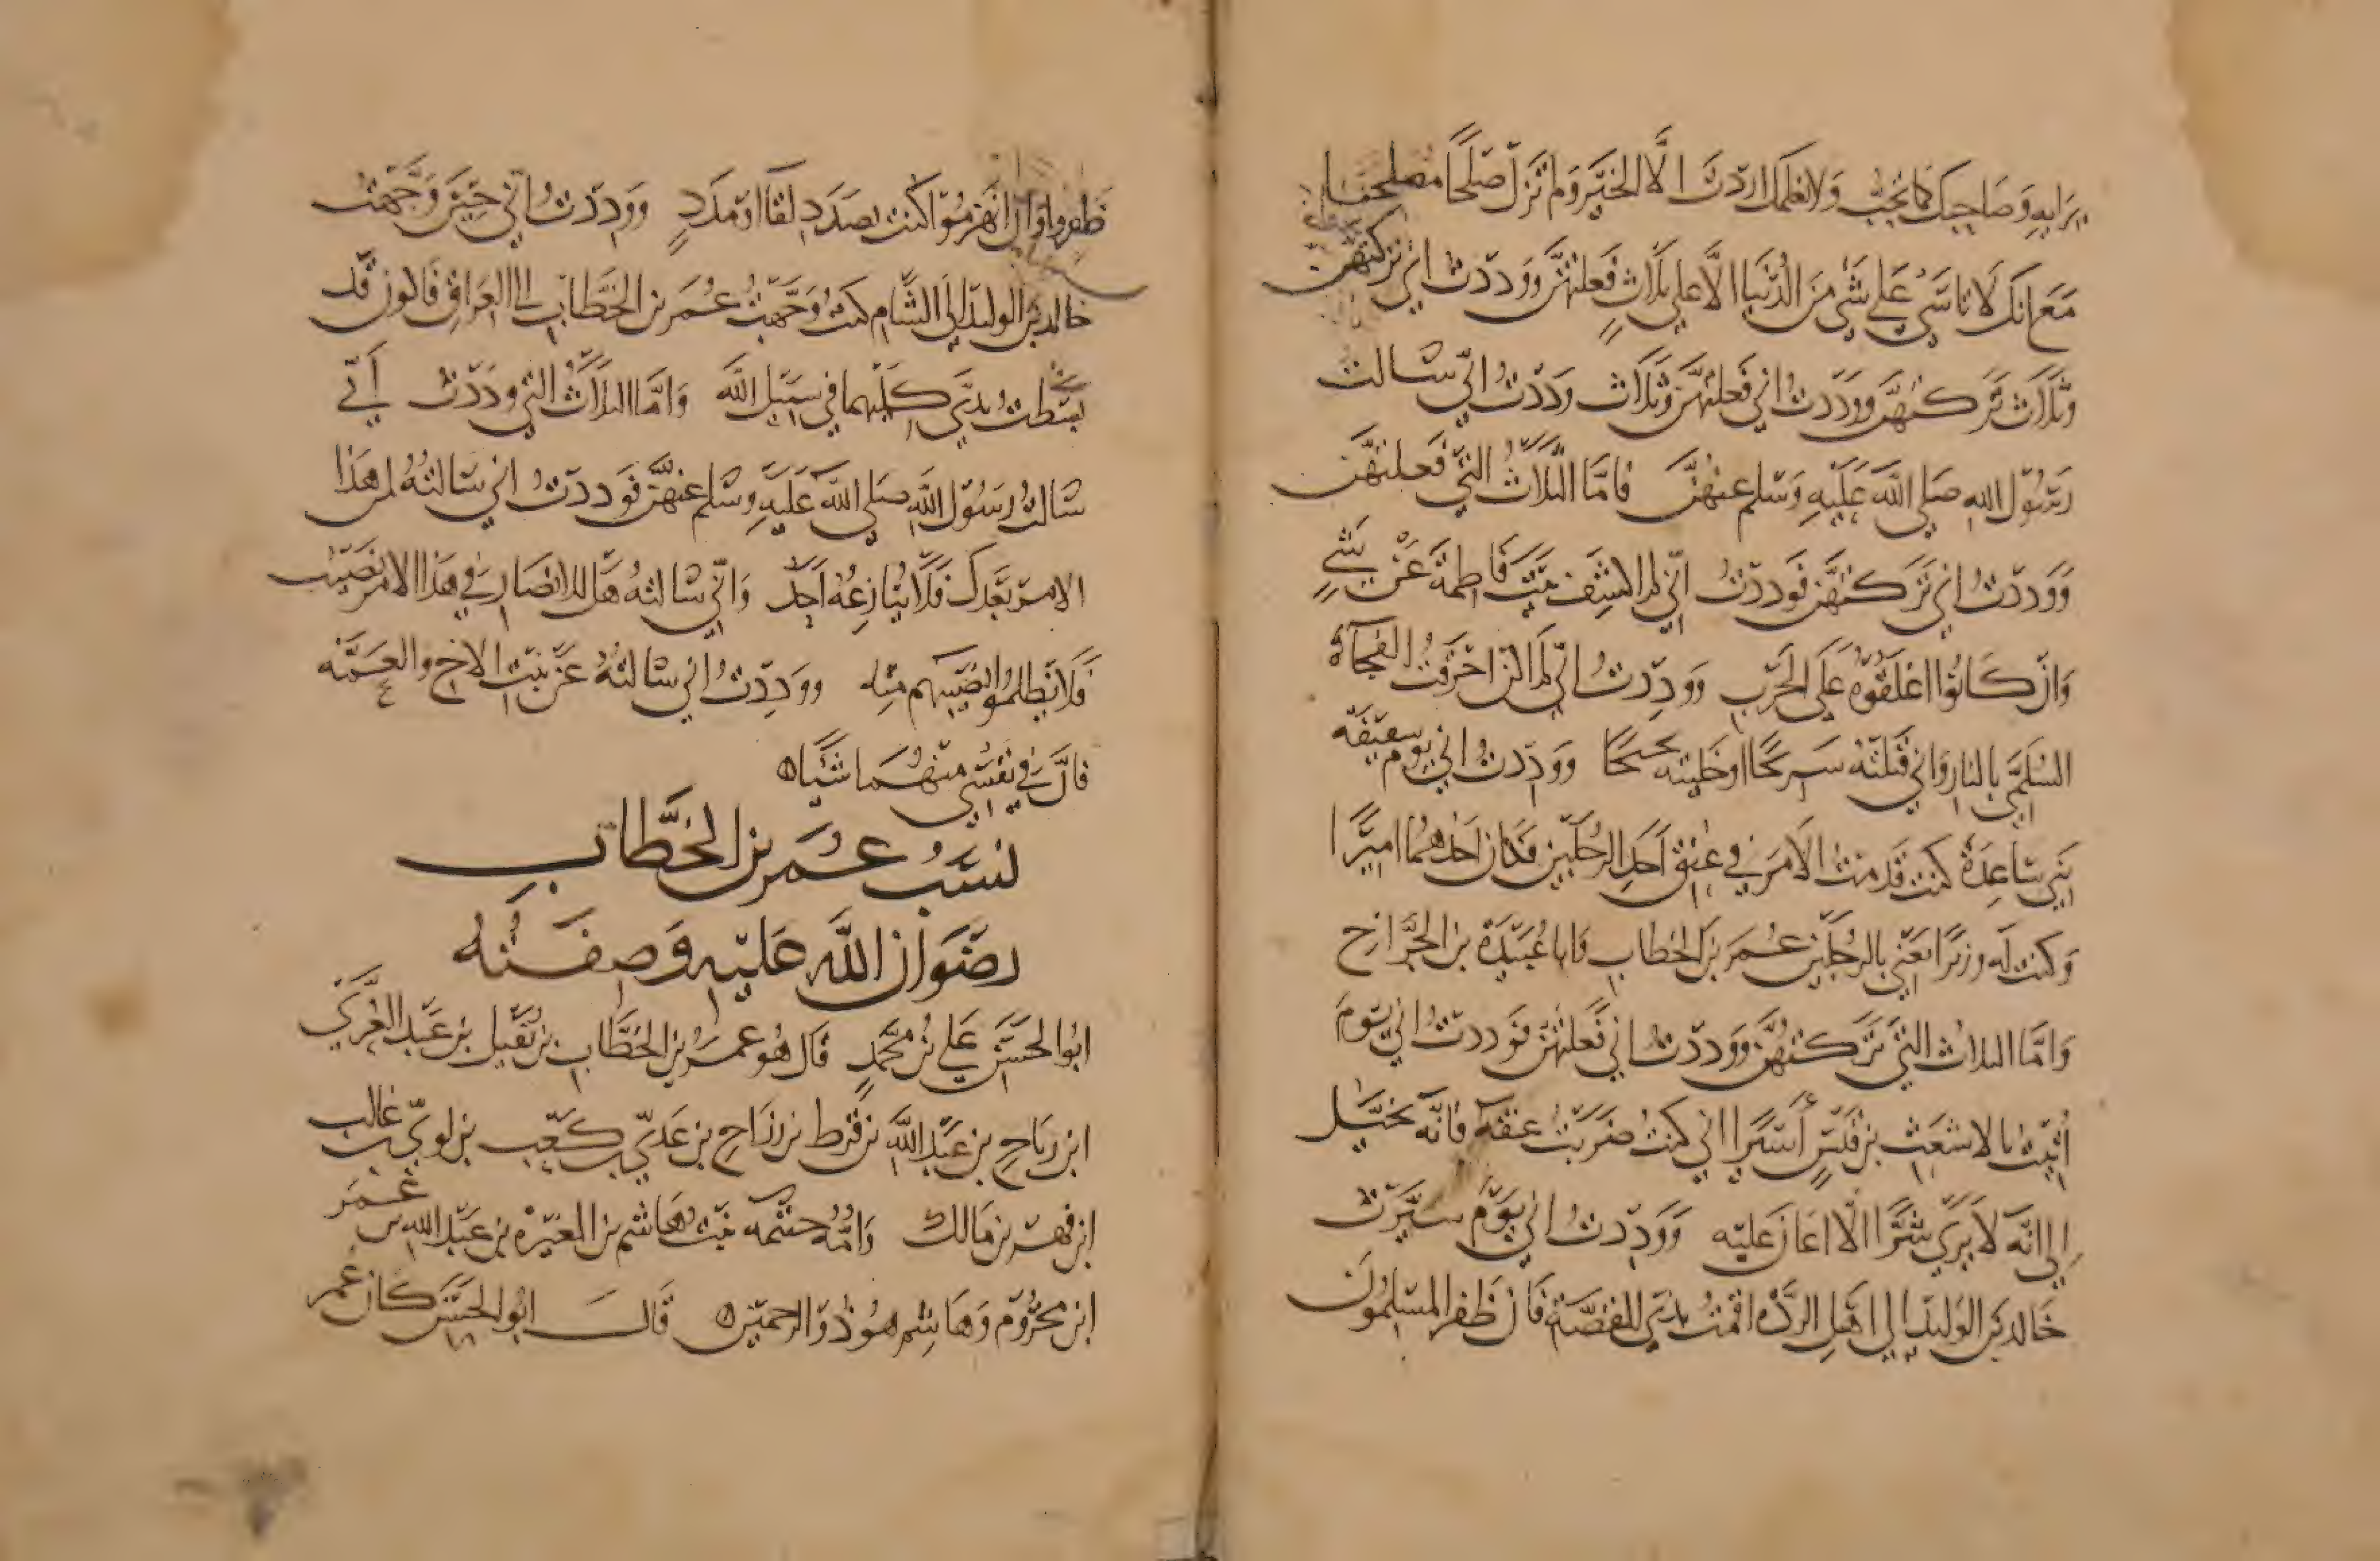 برايه وصاحبك كما تحب ولا نعلمك اردت الا الخير ولم تزل صالحا مصلحا
مع انك لا تاسى على شي من الدنيا الا على ثلاث فعلتهن ووددت اني تركتهن
وثلاث تركتهن ووددت اني فعلتهن وثلاث وددت اني سالت
رسول الله صلى الله عليه وسلم عنهن فاما الثلاث التي فعلتهن
ووددت اني تركتهن فوددت اني لم اكشف بيت فاطمة عن شي
وان كانوا اغلقوه على الحرب ووددت اني لم اكن احرقت الفجاة
السلمي بالنار واني قتلته سريحا او خليته نجيحا ووددت اني يوم سقيفة
بني ساعدة كنت قدمت الامر في عنق احد الرجلين فكان احدهما اميرا
وكنت له وزيرا يعني بالرجلين عمر بن الخطاب وابا عبيدة بن الجراح
واما الثلاث التي تركتهن ووددت اني فعلتهن فوددت اني يوم
اتيت بالاشعث بن قيس اسيرا اني كنت ضربت عنقه فانه تخيل
الي انه لا يرى شرا الا اعان عليه ووددت اني يوم سيرت
خالد بن الوليد الى اهل الردة اقمت بذي القصة فان ظفر المسلمون
ظفروا وان انهزموا كنت بصدد لقا او مدد ووددت اني حين وجهت
خالد بن الوليد الى الشام كنت وجهت عمر بن الخطاب الى العراق فاكون قد
بسطت يدي كلتيهما في سبيل الله واما الثلاث التي وددت اني
سالت رسول الله صلى الله عليه وسلم عنهن فوددت اني سالته لمن هذا
الامر بعدك فلا ينازعه احد واني سالته هل للانصار في هذا الامر نصيب
فلا يظلموا نصيبهم منه ووددت اني سالته عن بنت الاخ والعمة
فان في نفسي منهما شيا
نسب عمر بن الخطاب
رضوان الله عليه وصفته
ابو الحسن علي بن محمد قال هو عمر بن الخطاب بن نفيل بن عبد العزى
ابن رياح بن عبد الله بن قرط بن رزاح بن عدي بن كعب بن لوي بن غالب
ابن فهر بن مالك وامه حنتمة بنت هاشم بن المغيرة بن عبد الله بن عمر
ابن مخزوم وهاشم هو ذو الرمحين قال ابو الحسن كان عمر